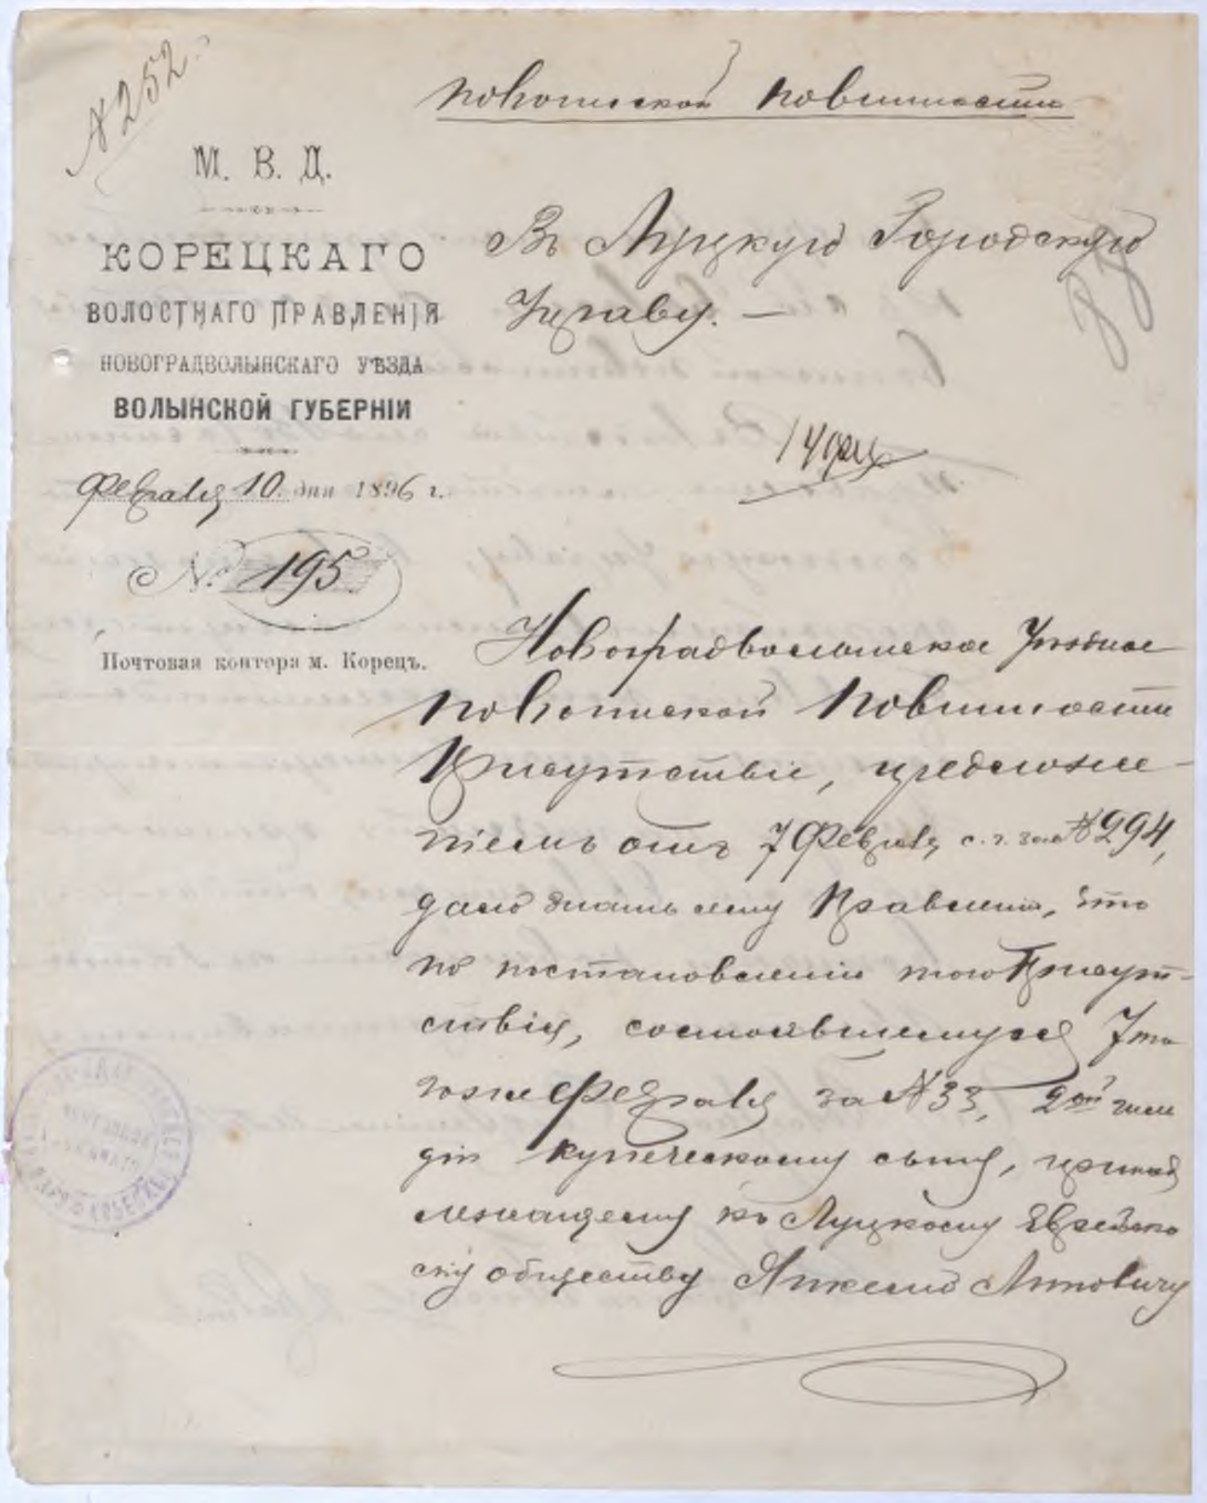 № 252.
По воинской повинности
М. В. Д.
КОРЕЦКАГО
ВОЛОСТНАГО ПРАВЛЕНІЯ
НОВОГРАДВОЛЫНСКАГО УѢЗДА
ВОЛЫНСКОЙ ГУБЕРНІИ
Февраля 10 дня 1896 г.
№ 195.
Почтовая контора м. Корецъ.
Въ Луцкую Городскую
Управу. —
14 фев
88
Новоградволынское Уѣздное
по воинской повинности
Присутствіе, предложе-
ніемъ отъ 7 Февраля с. г. за № 294,
дало знать сему Правленію, что
по постановленію того Присут-
ствія, состоявшемуся 7го
того же Февраля за № 33, 2ой гиль
діи купеческому сыну, принад
лежащему къ Луцкому Еврейско
му обществу Янкелю Липовичу